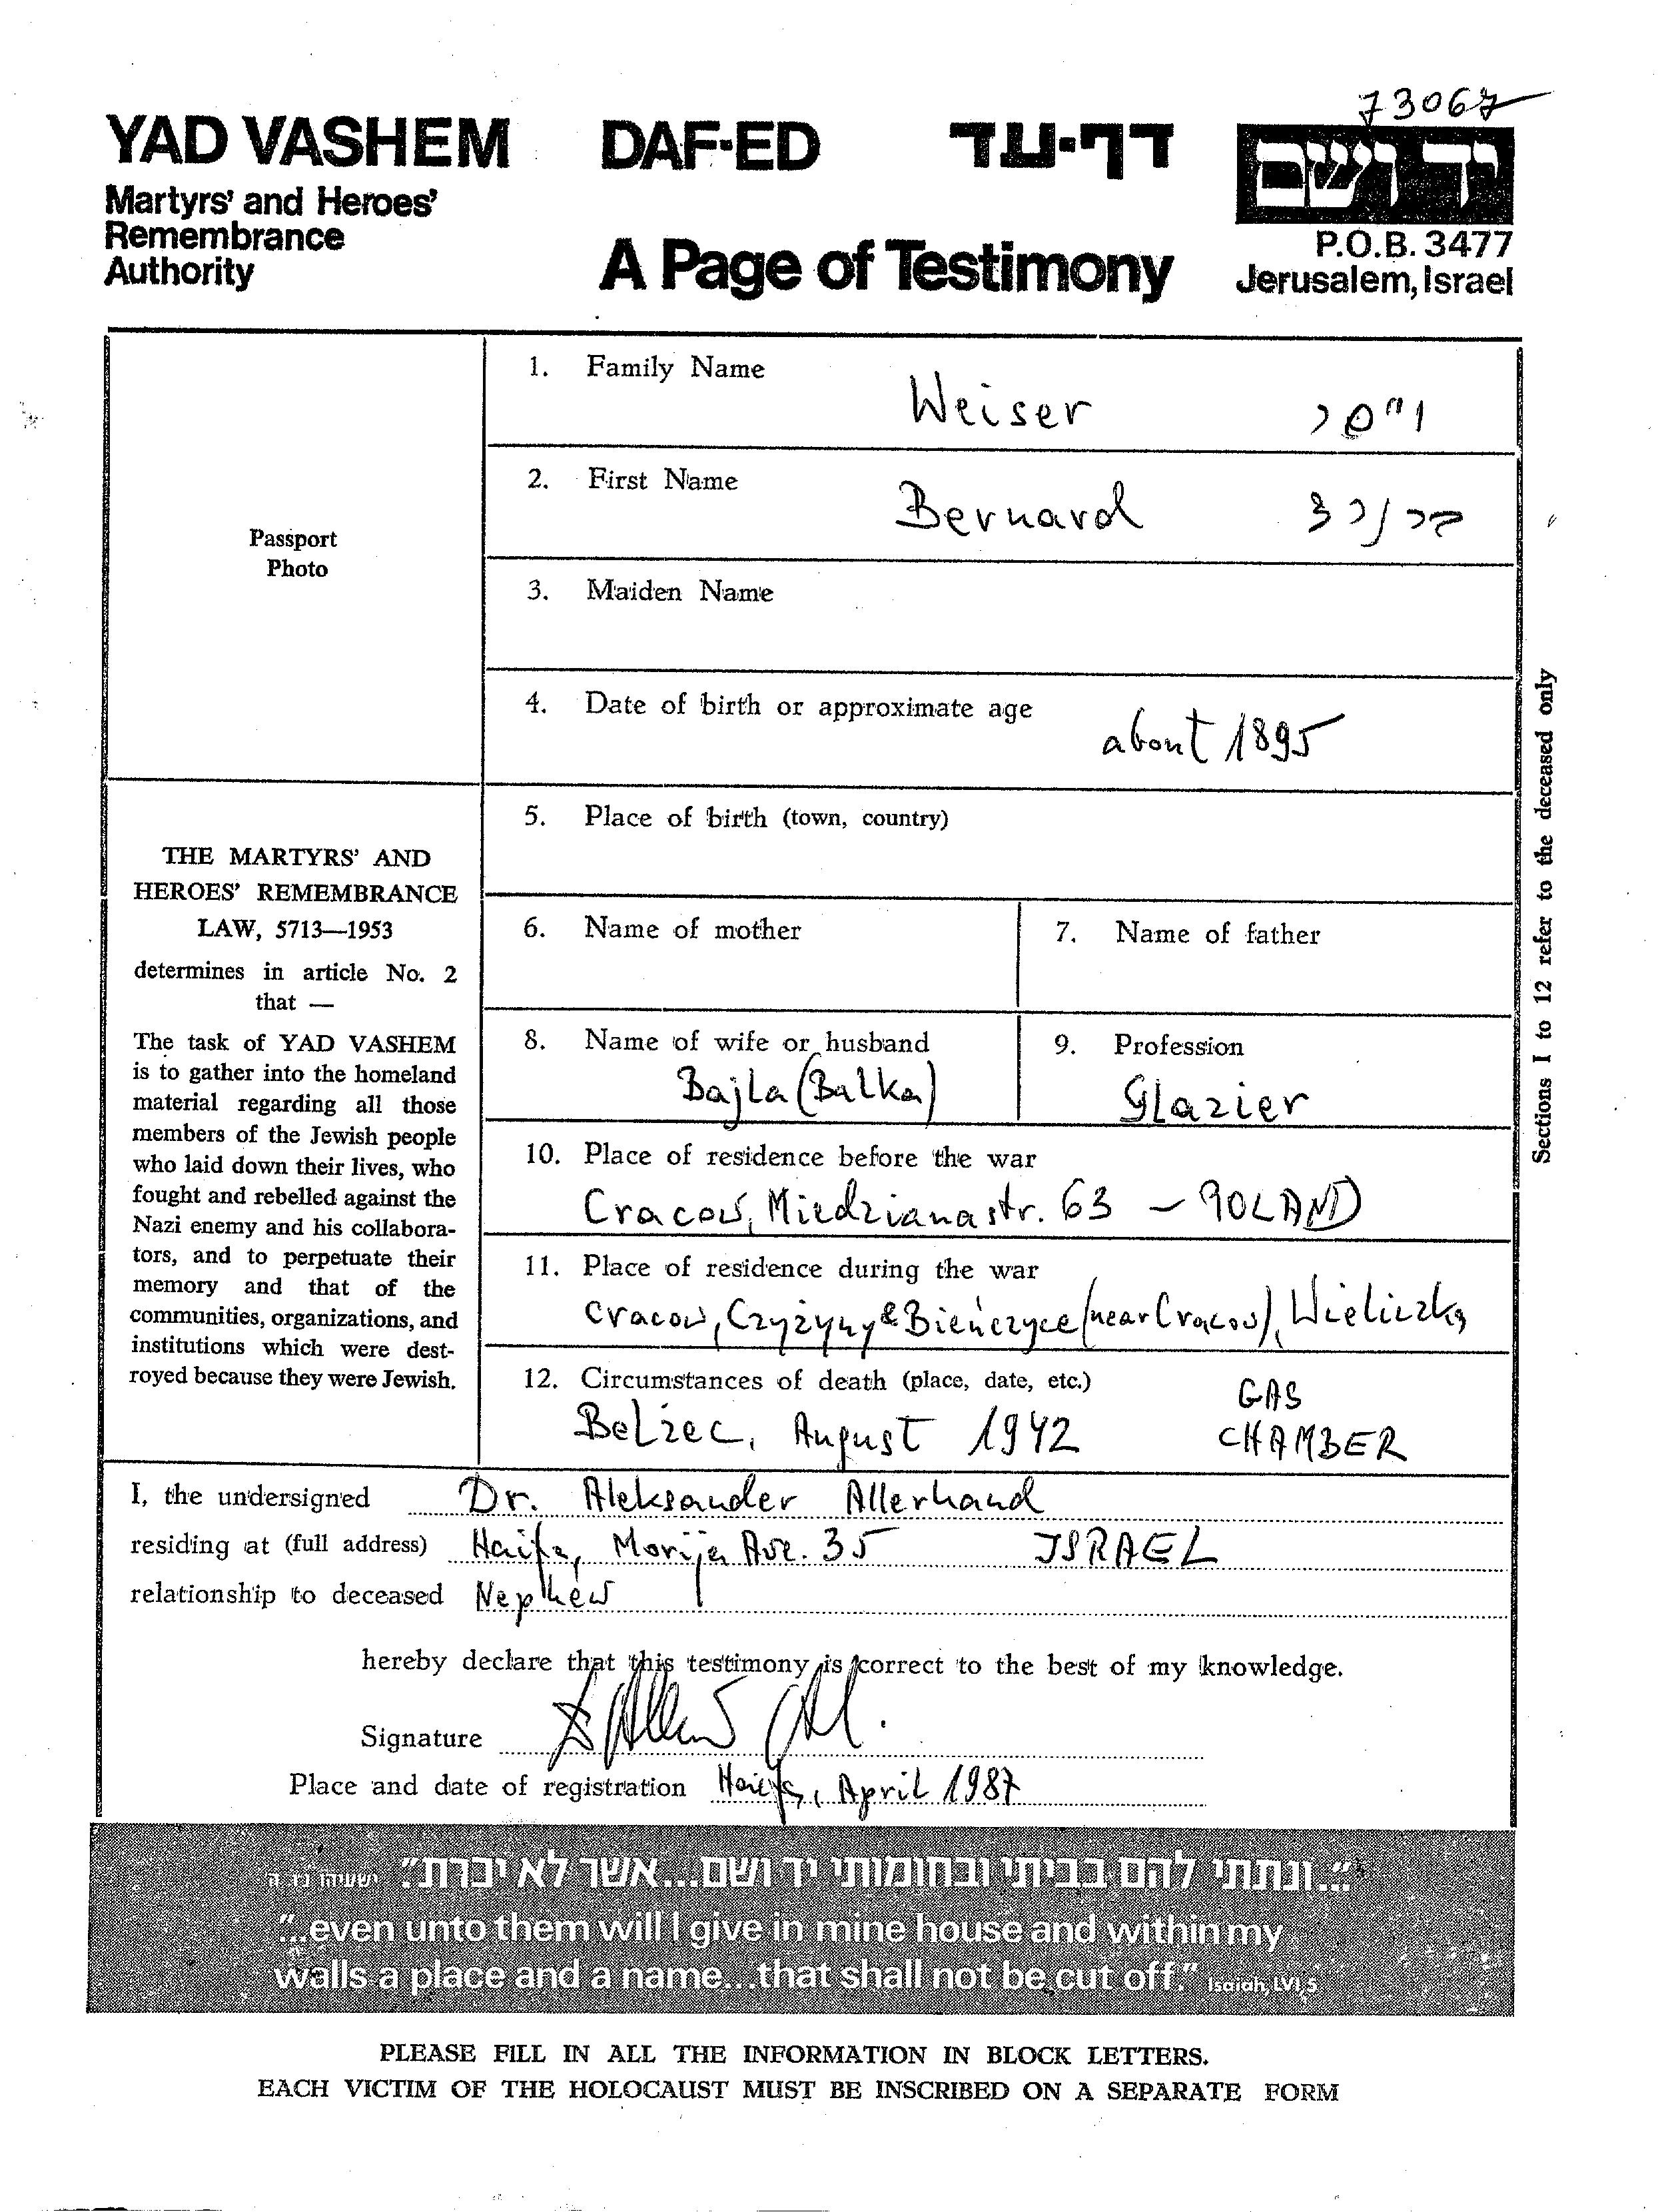 73067
YAD VASHEM DAF-ED דף-עד ידושם
Martyrs' and Heroes'
Remembrance
Authority
A Page of Testimony
P.O.B. 3477
Jerusalem, Israel
Passport
Photo
1. Family Name
Weiser וייסר
2. First Name
Bernard ברנרד
3. Maiden Name
4. Date of birth or approximate age
about 1895
5. Place of birth (town, country)
6. Name of mother
7. Name of father
8. Name of wife or husband
Bajla (Balka)
9. Profession
Glazier
10. Place of residence before the war
Cracow, Miedziana str. 63 – POLAND
11. Place of residence during the war
Cracow, Czyżyny & Bieńczyce (near Cracow), Wieliczka
12. Circumstances of death (place, date, etc.)
Belzec, August 1942 GAS
CHAMBER
THE MARTYRS' AND
HEROES' REMEMBRANCE
LAW, 5713—1953
determines in article No. 2
that —
The task of YAD VASHEM
is to gather into the homeland
material regarding all those
members of the Jewish people
who laid down their lives, who
fought and rebelled against the
Nazi enemy and his collabora-
tors, and to perpetuate their
memory and that of the
communities, organizations, and
institutions which were dest-
royed because they were Jewish.
Sections 1 to 12 refer to the deceased only
I, the undersigned Dr. Aleksander Allerhand
residing at (full address) Haifa, Morija Ave. 35 ISRAEL
relationship to deceased Nephew
hereby declare that this testimony is correct to the best of my knowledge.
Signature
Place and date of registration Haifa, April 1987
"...ונתתי להם בביתי ובחומותי יד ושם...אשר לא יכרת." ישעיהו נו, ה
"...even unto them will I give in mine house and within my
walls a place and a name...that shall not be cut off." Isaiah, LVI, 5
PLEASE FILL IN ALL THE INFORMATION IN BLOCK LETTERS.
EACH VICTIM OF THE HOLOCAUST MUST BE INSCRIBED ON A SEPARATE FORM